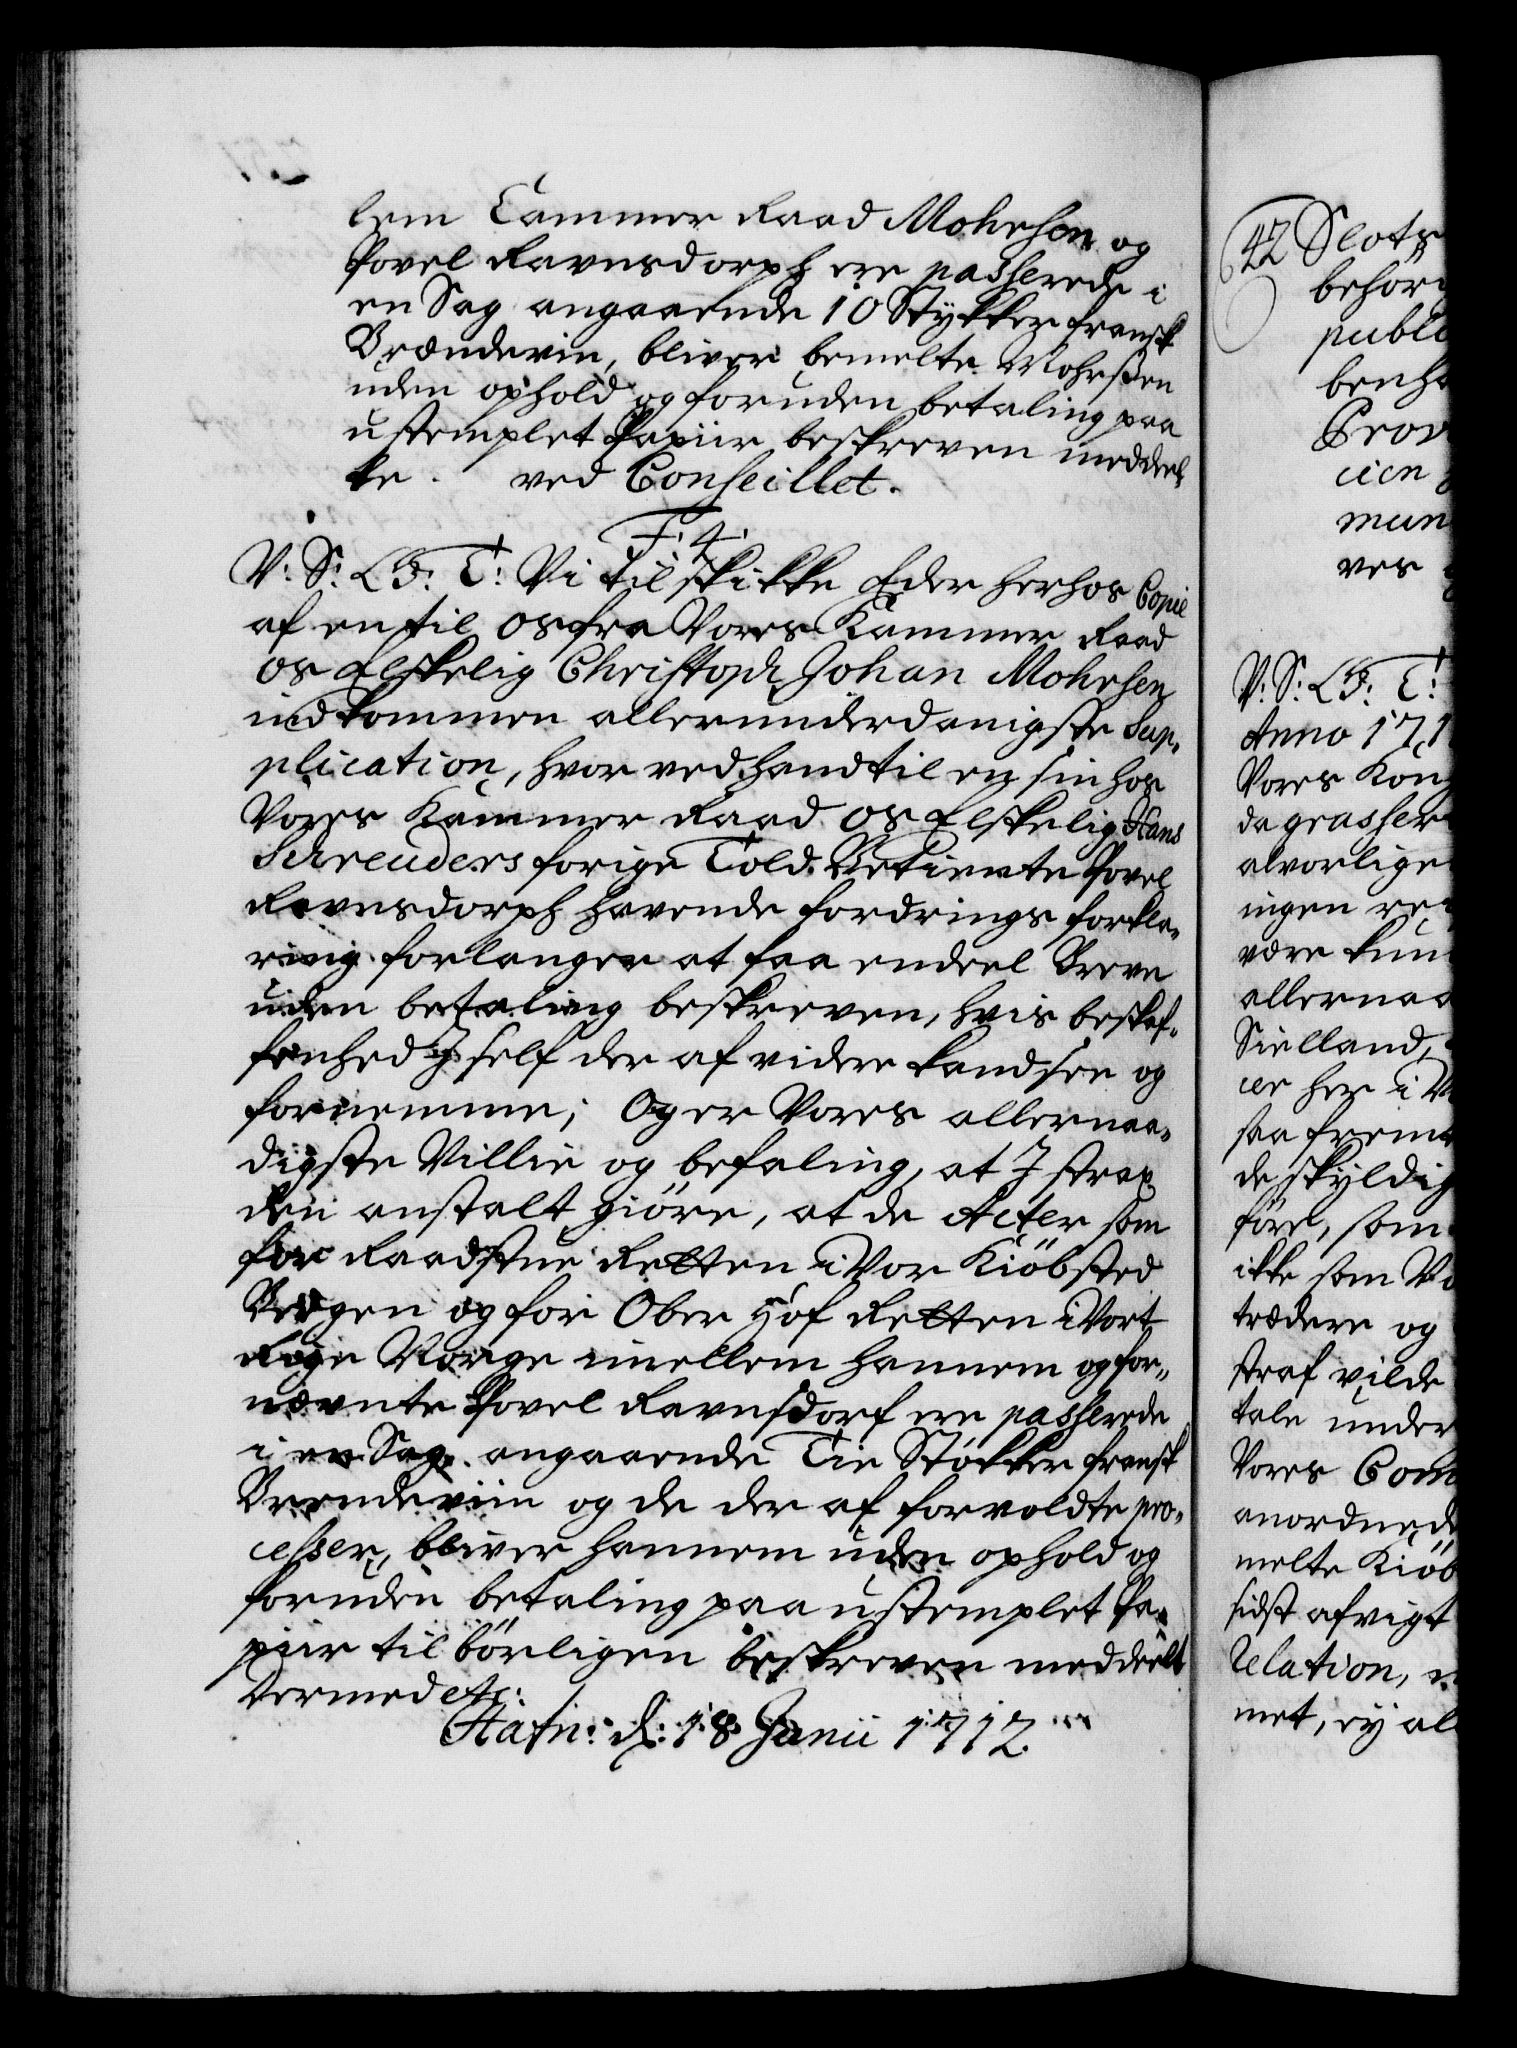 lem Cammer Raad Mohrsen og
Povel Ravnsdorph ere passerede i
en Sag angaaende 10 Stÿkker fransk
Brændeviin, bliver bemelte Mohrsen
uden ophold og foruden betaling paa
ustemplet Papiir beskreven meddeel-
te. ved Conseillet.
F. 4.
V: S: G: T: Vi tilskikke Eder herhos Copie
af en til os fra Vores Kammer Raad
os Elskelig Christoph Johan Mohrsen
indkommen allerunderdanigste Sup-
plication, hvor ved hand til en sin hos
Vores Kammer Raad os Elskelig Hans
Schreuders forige Told-Betiente Povel
Ravnsdorph havende fordrings forkla-
ring forlanger at faa endeel Breve
uden betaling beskreven, hvis beskaf-
fenhed I self der af videre kand see og
fornemme; Og er Vores allernaa-
digste Villie og befaling, at I strax
den anstalt giöre, at de Acter som
for Raadstue Retten i Vor Kiöbsted
Bergen og for Ober Hof Retten i Vort
Rige Norge imellem hannem og for-
nevnte Povel Ravnsdorf ere passerede
i en Sag angaaende Tie Støkker fransk
Brendeviin og de der af forvoldte pro-
cesser, bliver hannem uden ophold og
foruden betaling paa ustemplet Pa-
piir til börligen beskreven meddeelt
Dermed etc:
Hafn: d: 18 Junii 1712.
42 Slots
behör
publi
benha
Prov
cien
mun
ves
V: S: G: T:
Anno 171
Vores Kong
da grasser
alvorlige
ingen rei
være kun
allernaa
Sielland,
cer her i V
saa frem
de skÿldig
före, som
ikke som Vo
trædere og
straf vilde
tale under
Vores Com
anordnede
melte Kiöb
sidst afvigt
relation,
met, eÿ al